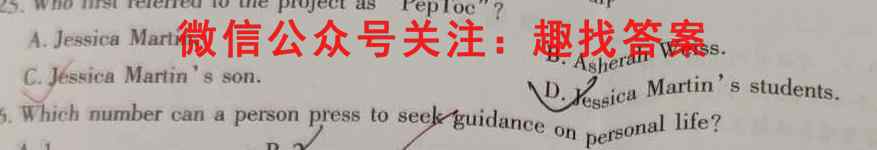 25. Who first referred to the project as "PepToc"?
微信公众号关注：趣找答案
A. Jessica Martin
B. Asherah Weiss.
C. Jessica Martin's son.
D. Jessica Martin's students.
Which number can a person press to seek guidance on personal life?